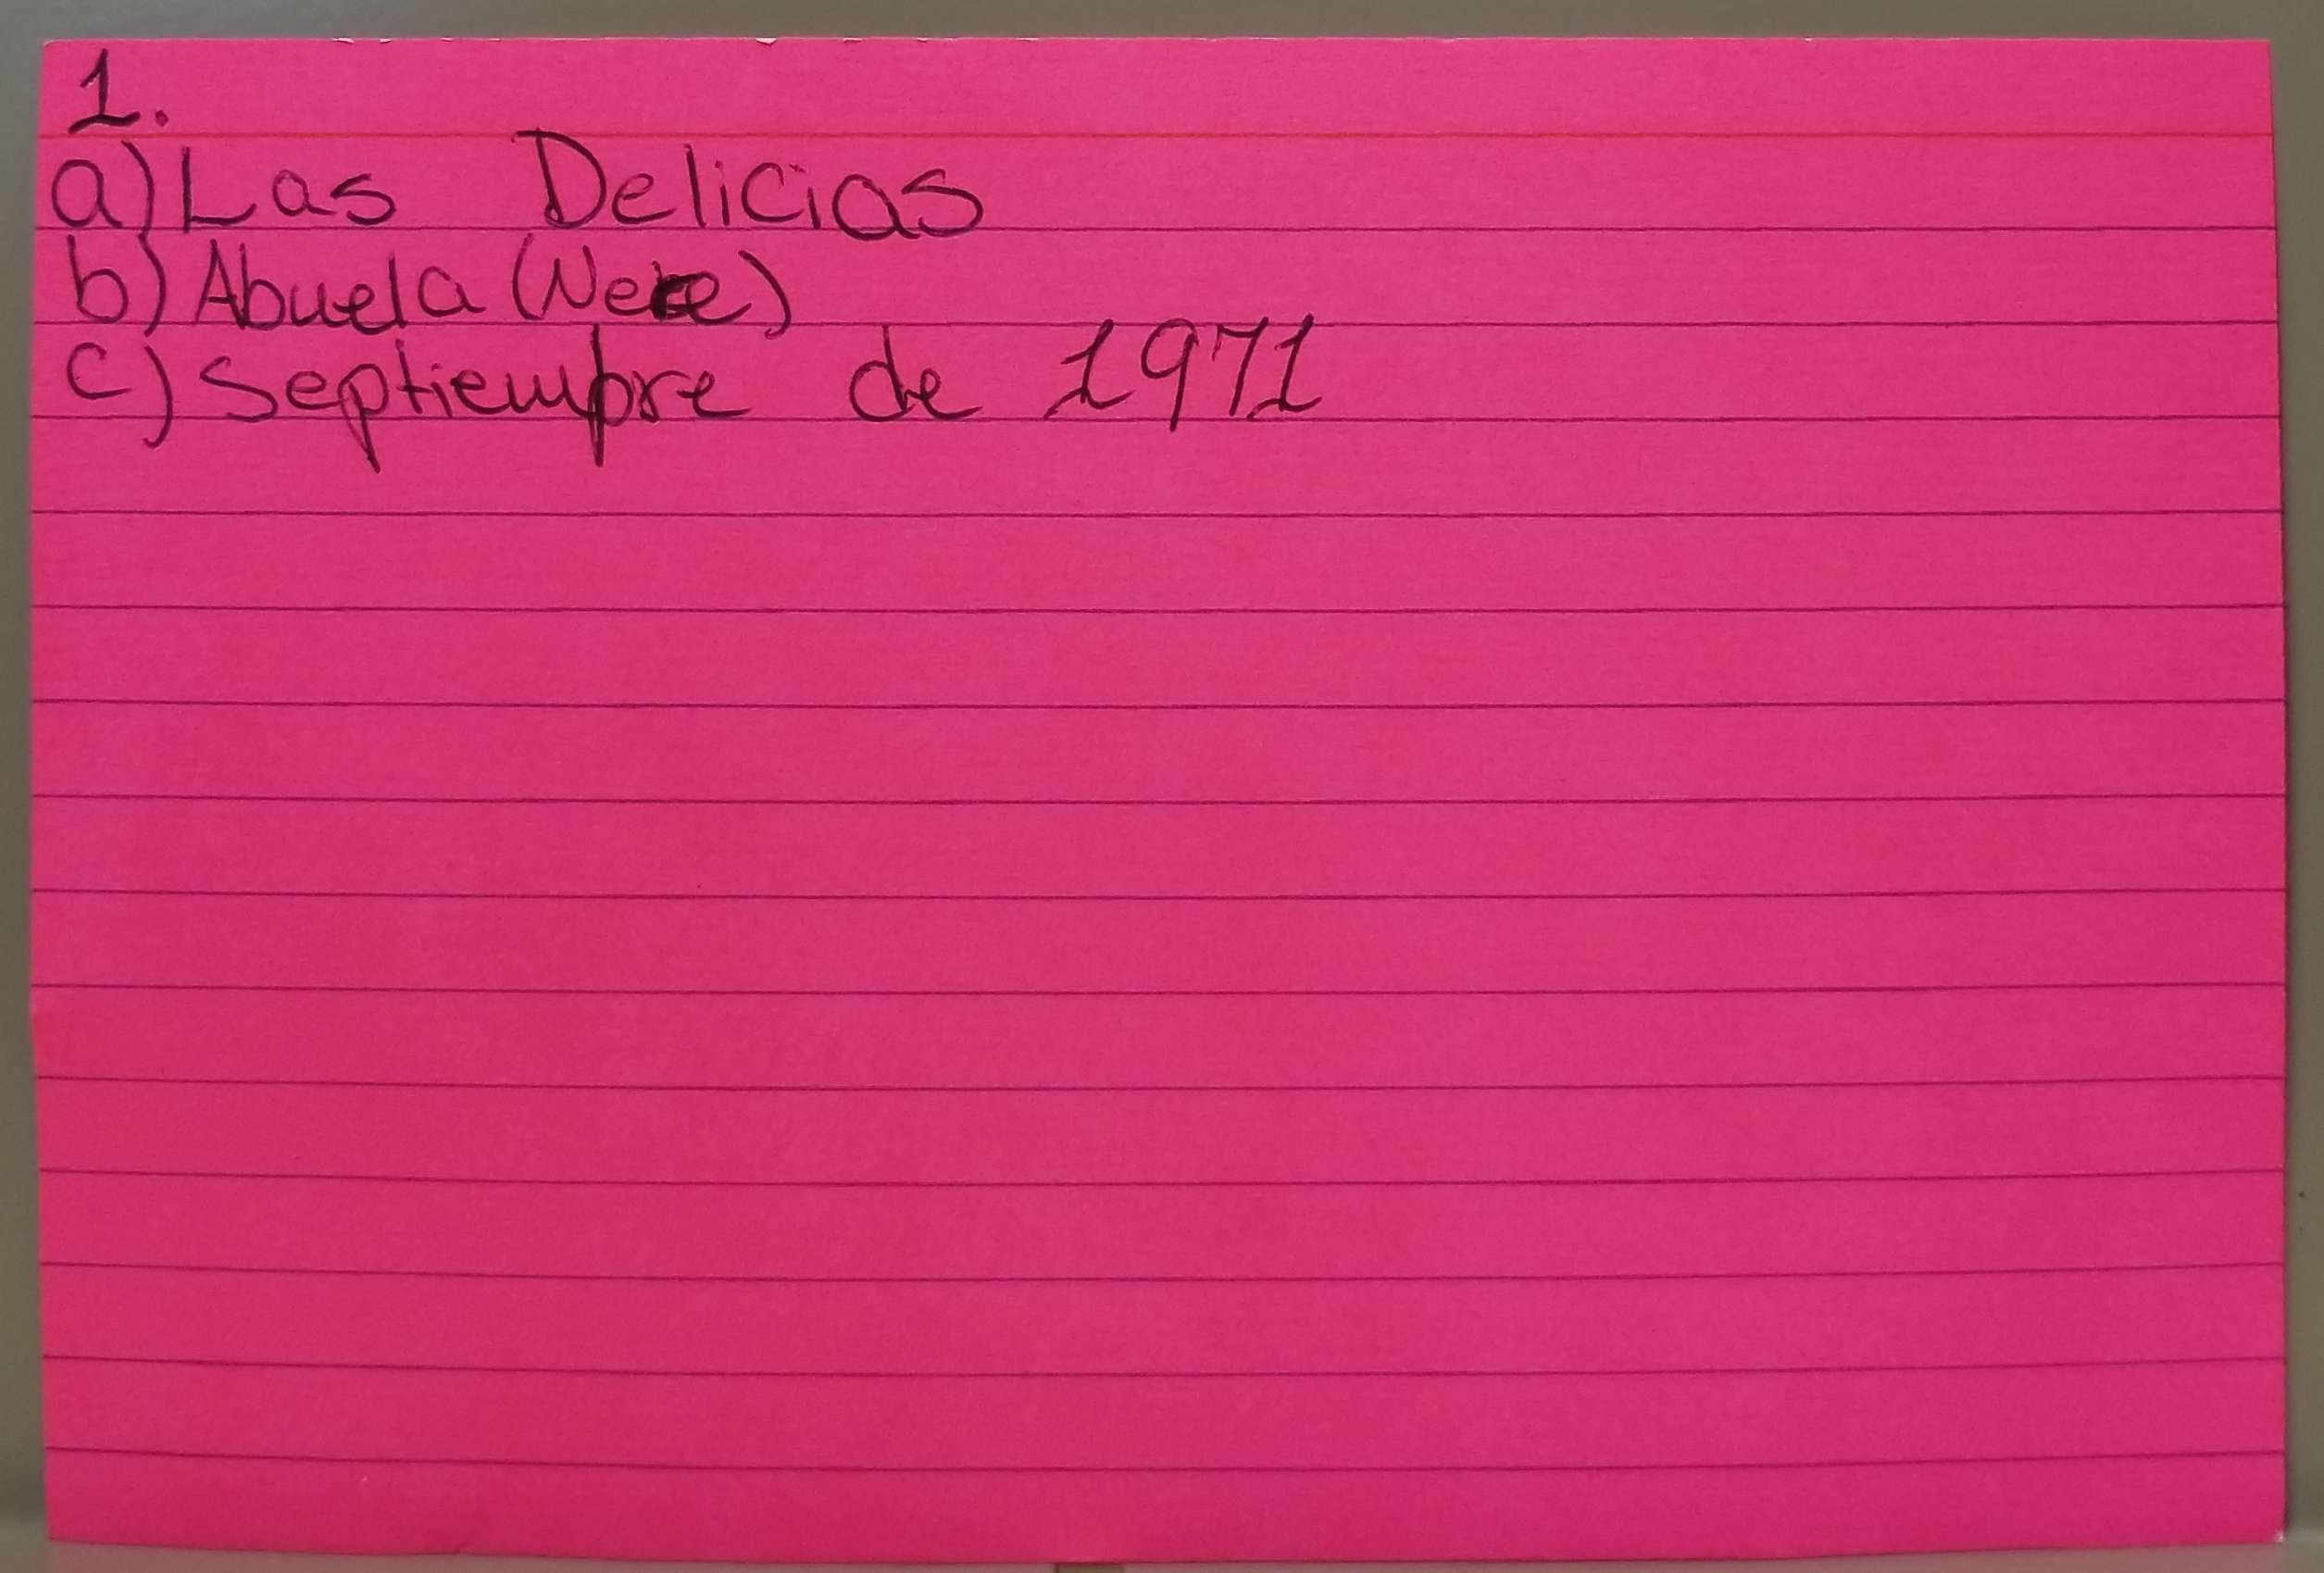 1.
a) Las Delicias
b) Abuela (Nene)
c) Septiembre de 1971